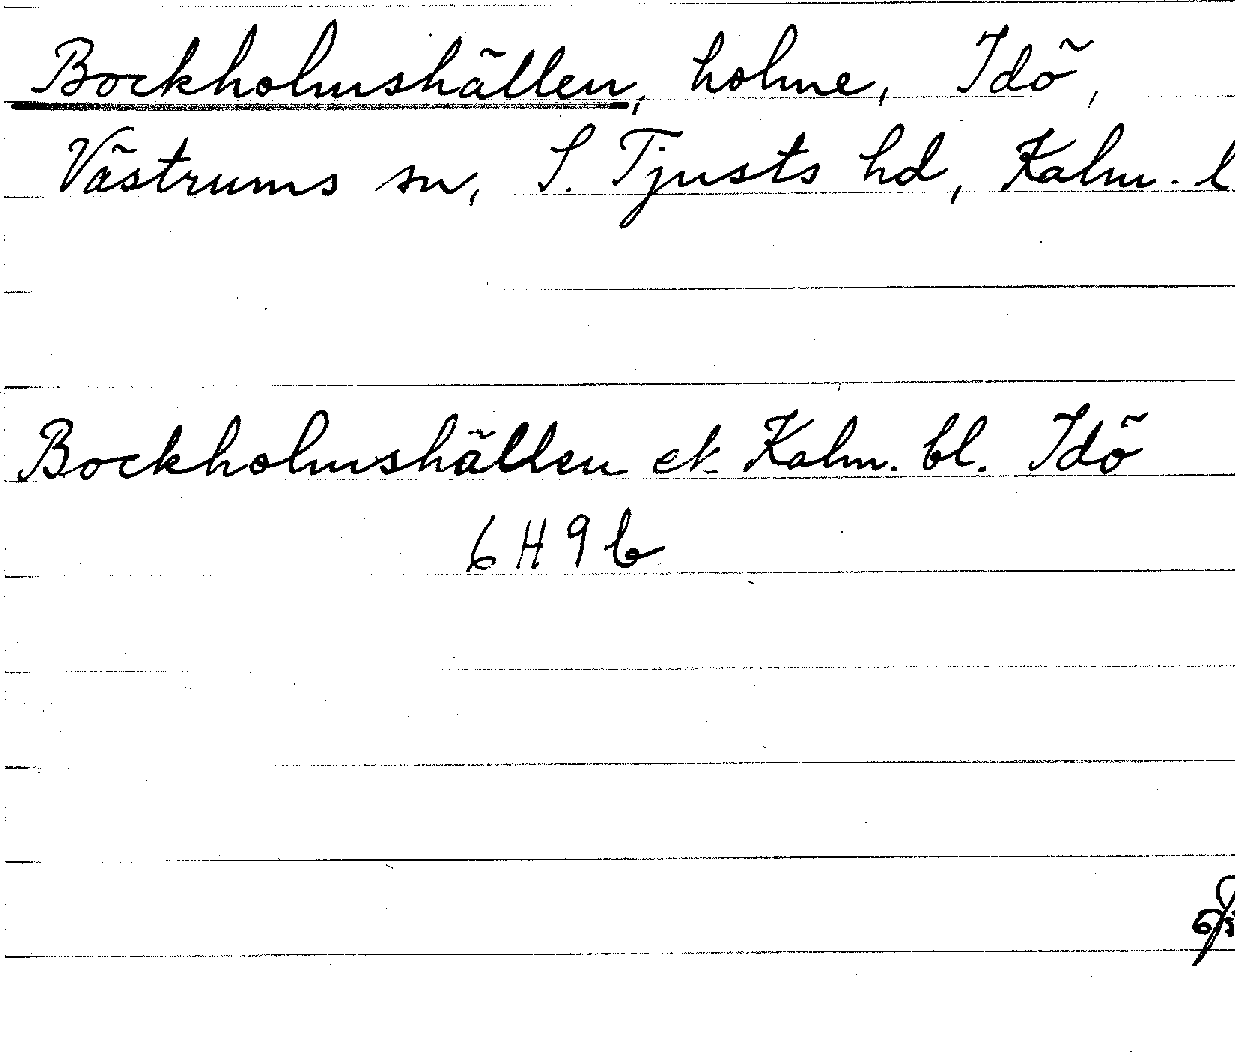 Bockholmshällen, holme, Idö,
Västrums sn, S. Tjusts hd, Kalm. l
Bockholmshällen ek Kalm. bl. Idö
6H9b